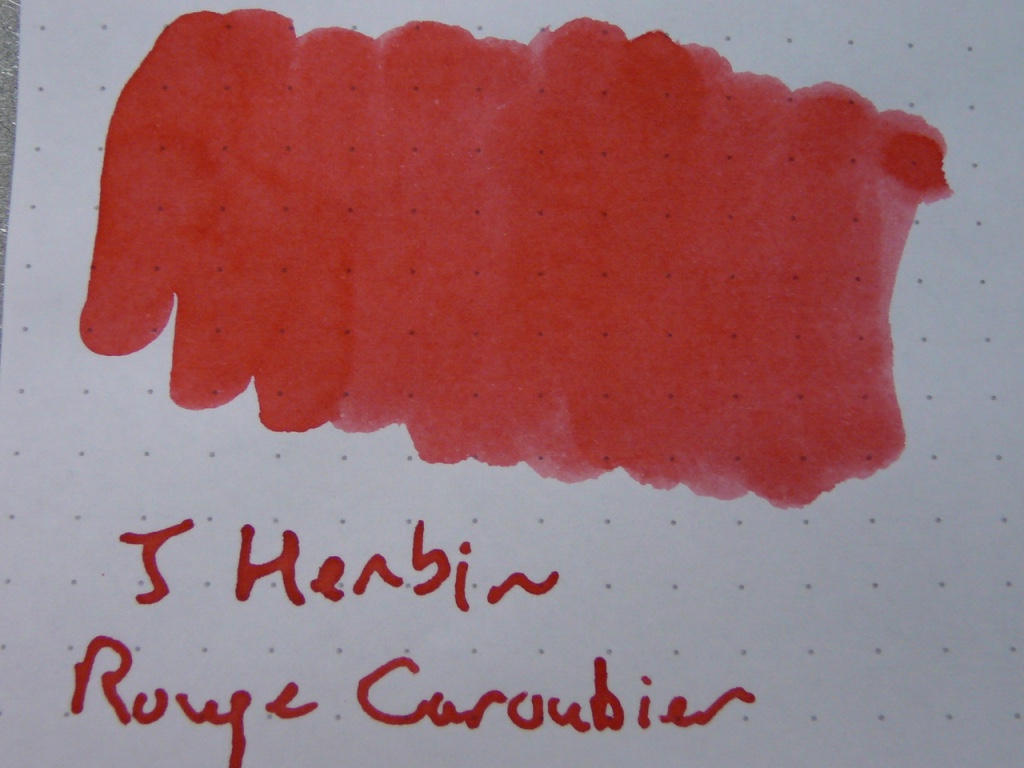 J Herbin
Rouge Caroubier